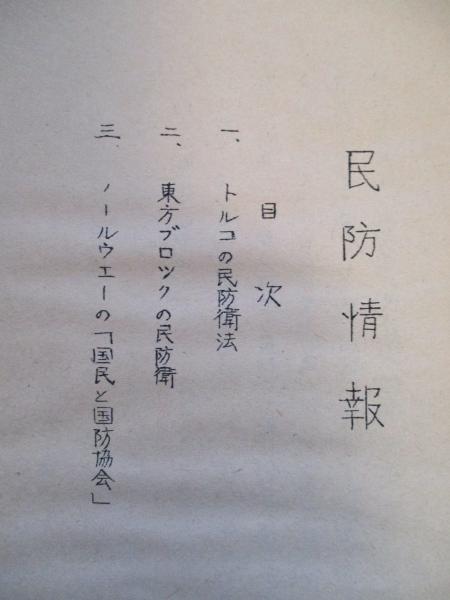 民防情報
目次
一、トルコの民防衛法
二、東方ブロツクの民防衛
三、ノールウエーの「国民と国防協会」